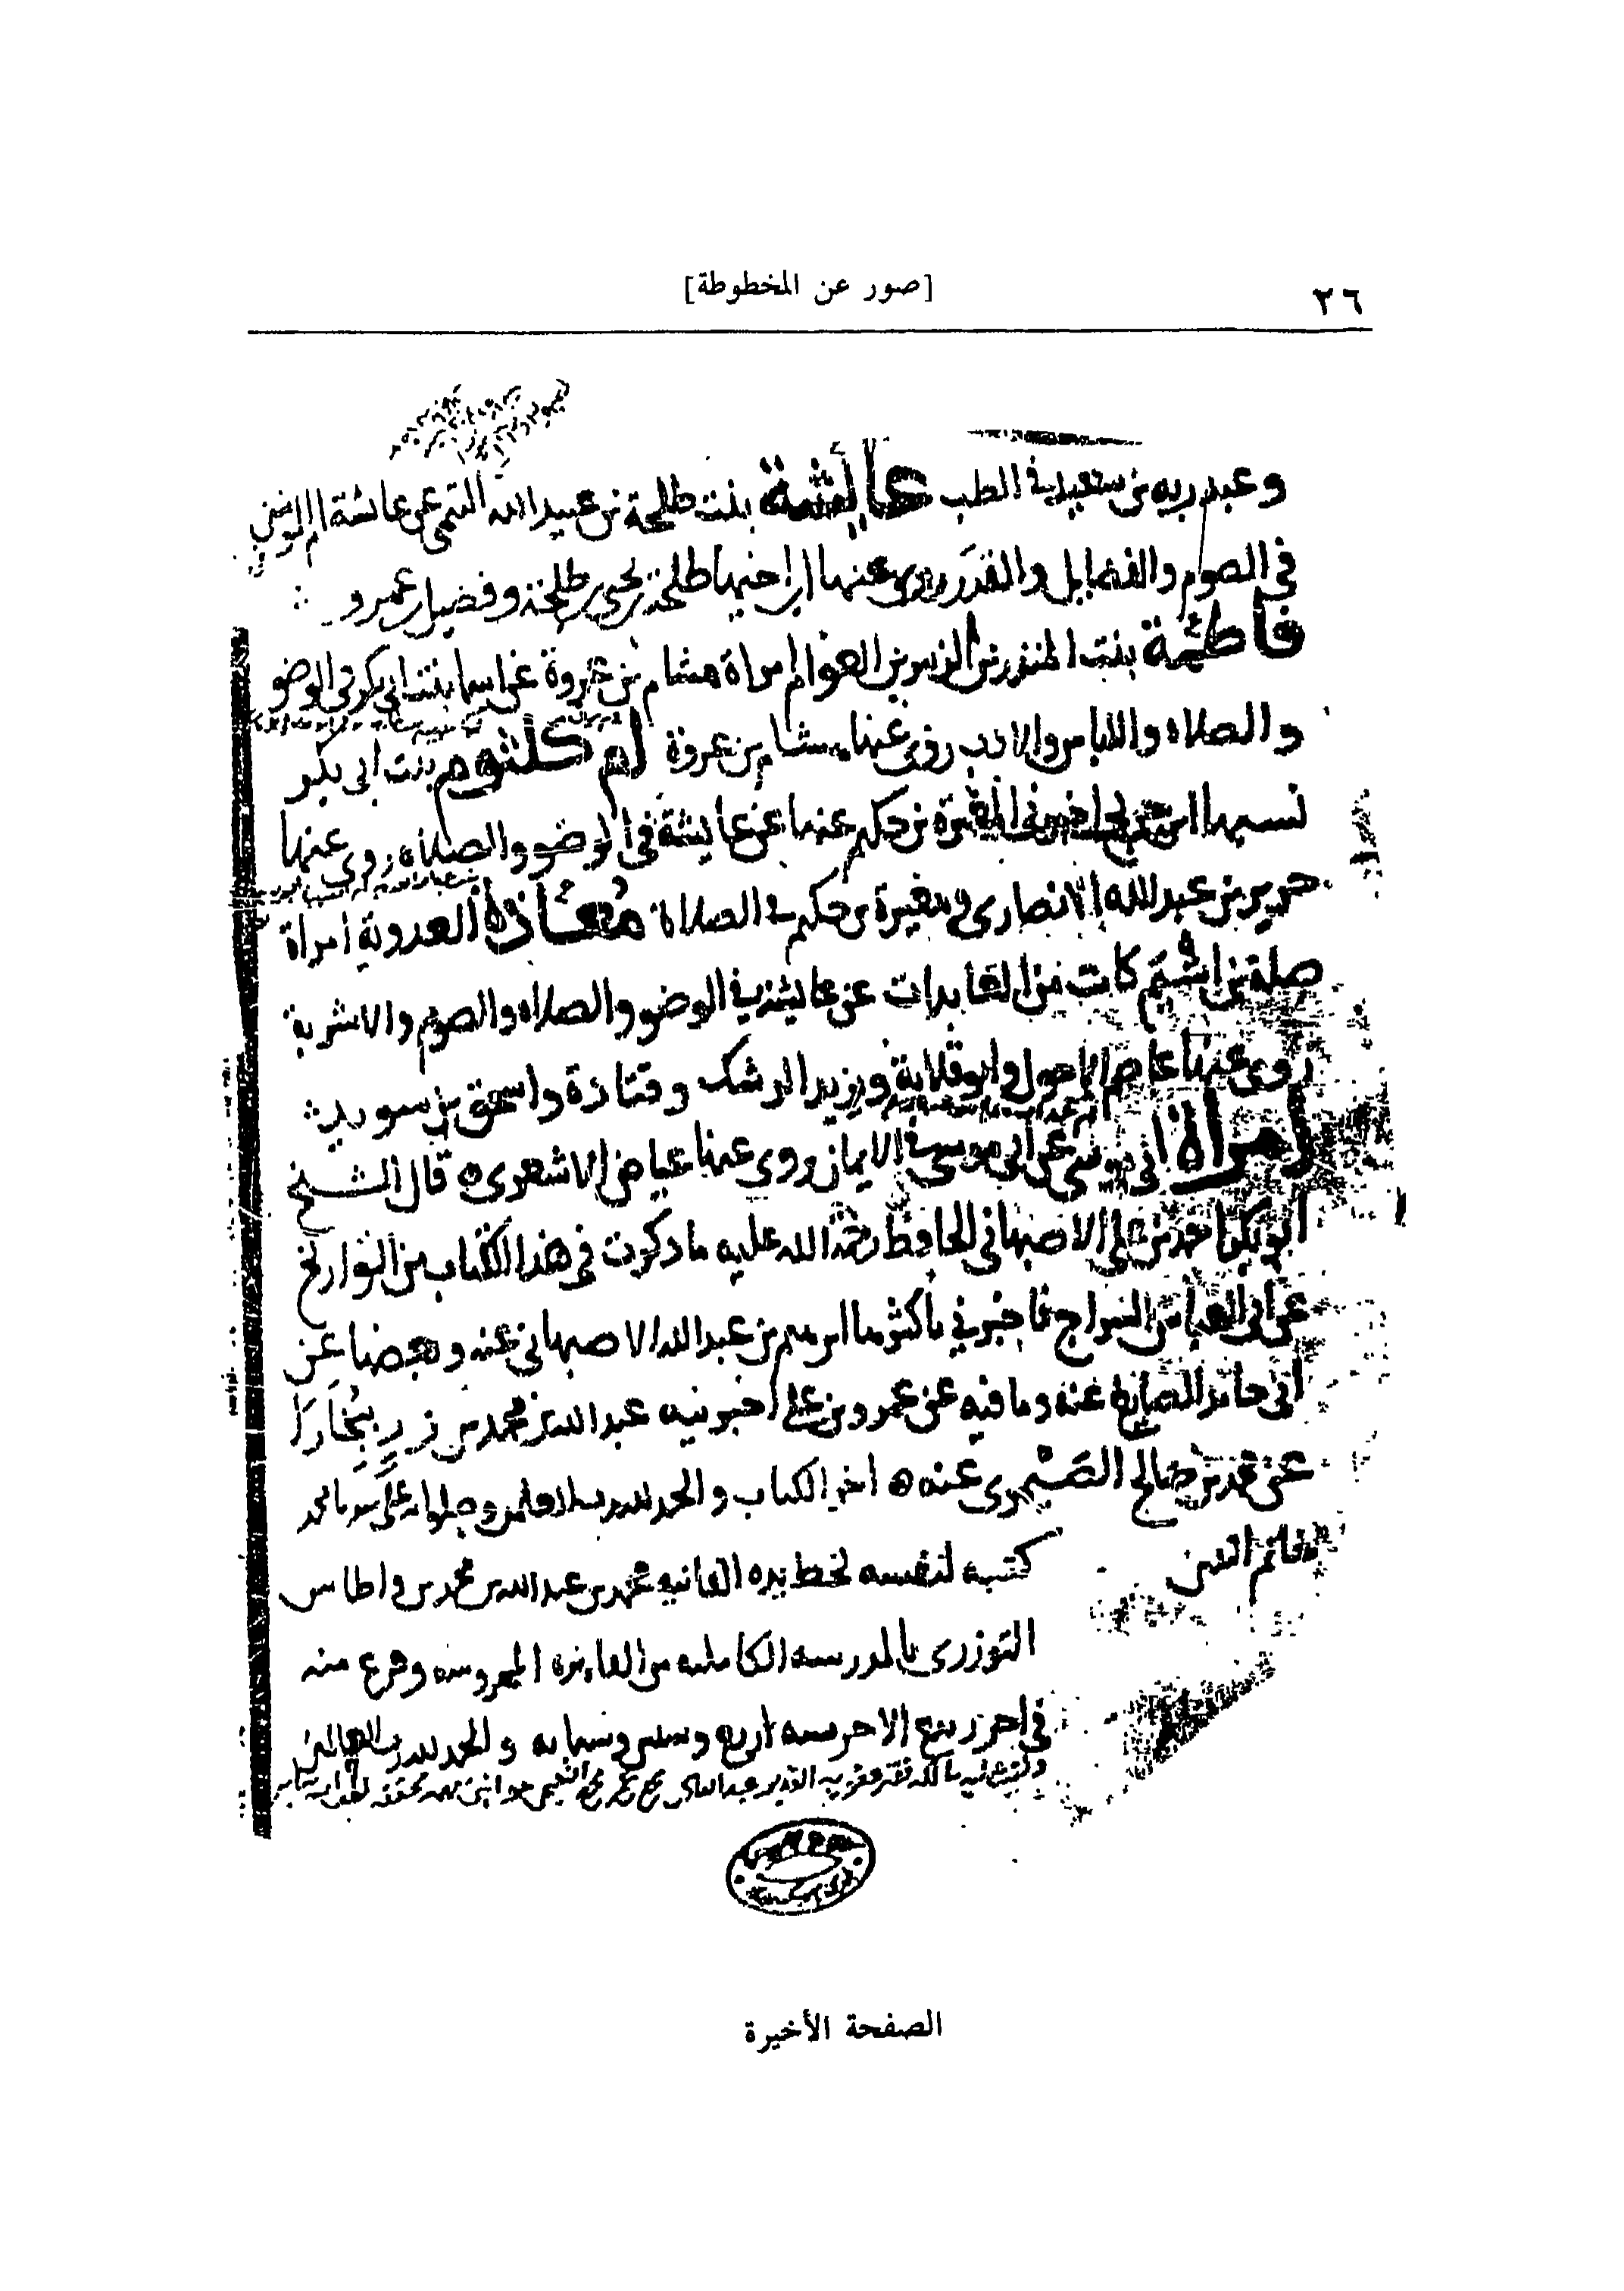 [صور عن المخطوطة]
٢٦
وعبد ربه بن سعيد في الطب عائشة بنت طلحة بن عبيد الله التيمي عن عائشة ام المومنين
في الصوم والفضايل والقدر روى عنها ابن اخيها طلحة بن يحيى بن طلحة وفضيل بن عمرو
فاطمة بنت المنذر بن الزبير بن العوام امراة هشام بن عروة عن اسما بنت ابي بكر في الوضو
والصلاه واللباس والادب روى عنها هشام بن عروة ام كلثوم بنت ابي بكر
نسبها ابن جريج اخبرني المغيرة بن حكيم عنها عن عايشة في الوضو والصلاه روى عنها
بن عبد الله الانصاري ومغيرة بن حكيم في الصلاة معاذة العدوية امراة
صلة بن اشيم كانت من العابدات عن عايشة في الوضو والصلاه والصوم والاشربة
روى عنها عاصم الاحول وابو قلابة ويزيد الرشك وقتادة واسحق بن سويد
امراة ابي موسى عن ابي موسى في الايمان روى عنها عياض الاشعري ه قال الشيخ
ابو بكر احمد بن علي الاصبهاني الحافظ رحمة الله عليه ما ذكرت في هذا الكتاب من التواريخ
عن ابي العباس السراج فاخبرني باكثرها ابرهيم بن عبد الله الاصبهاني عنه وبعضها عن
ابي حامد الصايغ عنه وما فيه عن عمرو بن علي اخبرنيه عبد الله بن محمد بن زر ببخارا
عن محمد بن صالح الصيمري عنه ه اخر الكتاب والحمد لله وصلواته على سيدنا محمد
خاتم النبيين
كتبه لنفسه بخط يده الفانيه محمد بن عبد الله بن محمد بن
التوزري بالمدرسه الكامليه من القاهره المحروسه وفرغ منه
في اخر ربيع الاخر سنه اربع وستين وسبمايه والحمد لله رب العالمين
الصفحة الأخيرة